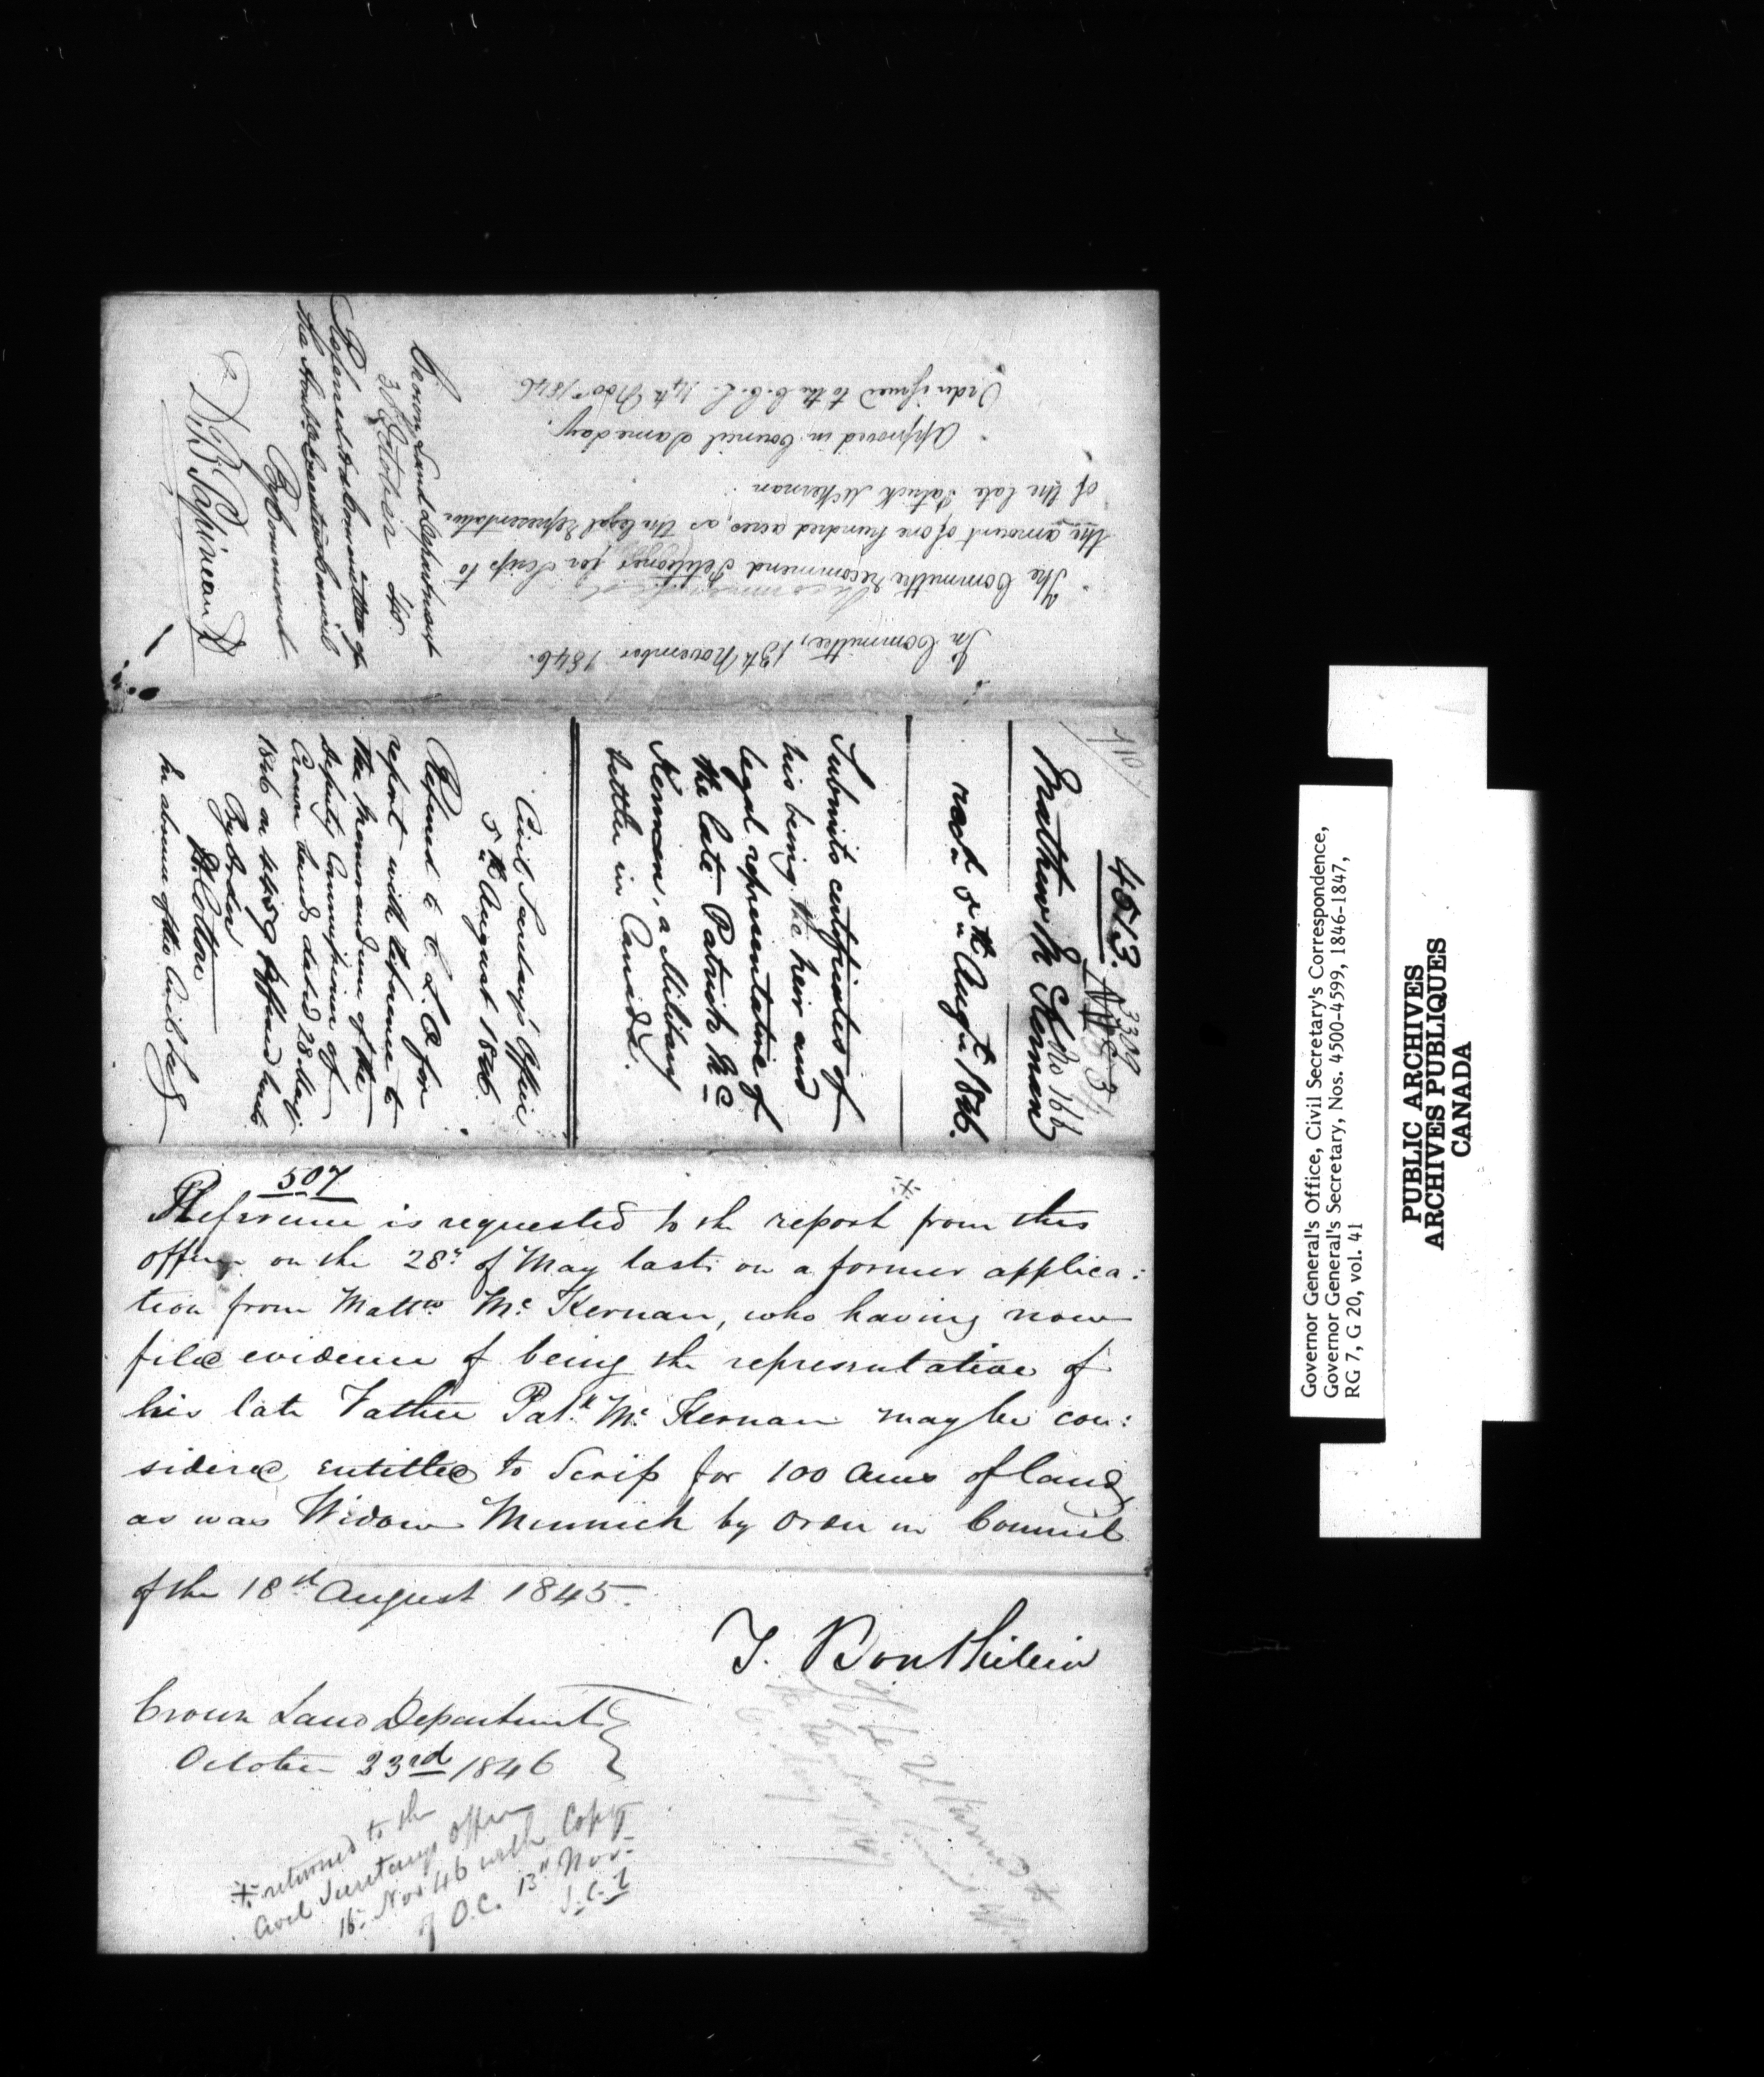 Crown Land Department
30 October 46.
Referred to the Committee of
the Honble Executive Council
By Command
D B Papineau
In Committee, 13th November 1846.
The Committee recommend Petitioner for Scrip to
the amount of one hundred acres, as the legal representative
of the late Patrick McKernan.
Approved in Council same day.
Order issued to the C.C.L. 14th Novr 1846
4513.
3309
No 166
Mathew Mc Kernan
recd 5th Augt 1846.
Submits certificates of
his being the heir and
legal representative of
the late Patrick Mc
Kernan, a Military
settler in Canada.
Civil Secretary's Office
5th August 1846.
Referred to C. L. D for
report with reference to
the memorandum of the
Deputy Commissioner of
Crown Lands dated 28 May
1846 on
By Order
Cotton
In absence of the Civil Secy
507
Reference is requested to the report from this
office on the 28th of May last on a former applica:
tion from Mattw Mc Kernan, who having now
filed evidence of being the representative of
his late Father Patk Mc Kernan may be con:
sidered entitled to Scrip for 100 acres of land,
as was Widow Minnick by Order in Council
of the 18th August 1845.
T. Bouthillier
Crown Land Department
October 23rd 1846
+ returned to the
Civil Secretarys Office
16 Nov 46 with Copy
of O.C. 13th Nov.
Governor General's Office, Civil Secretary's Correspondence,
Governor General's Secretary, Nos. 4500-4599, 1846-1847,
RG 7, G 20, vol. 41
PUBLIC ARCHIVES
ARCHIVES PUBLIQUES
CANADA